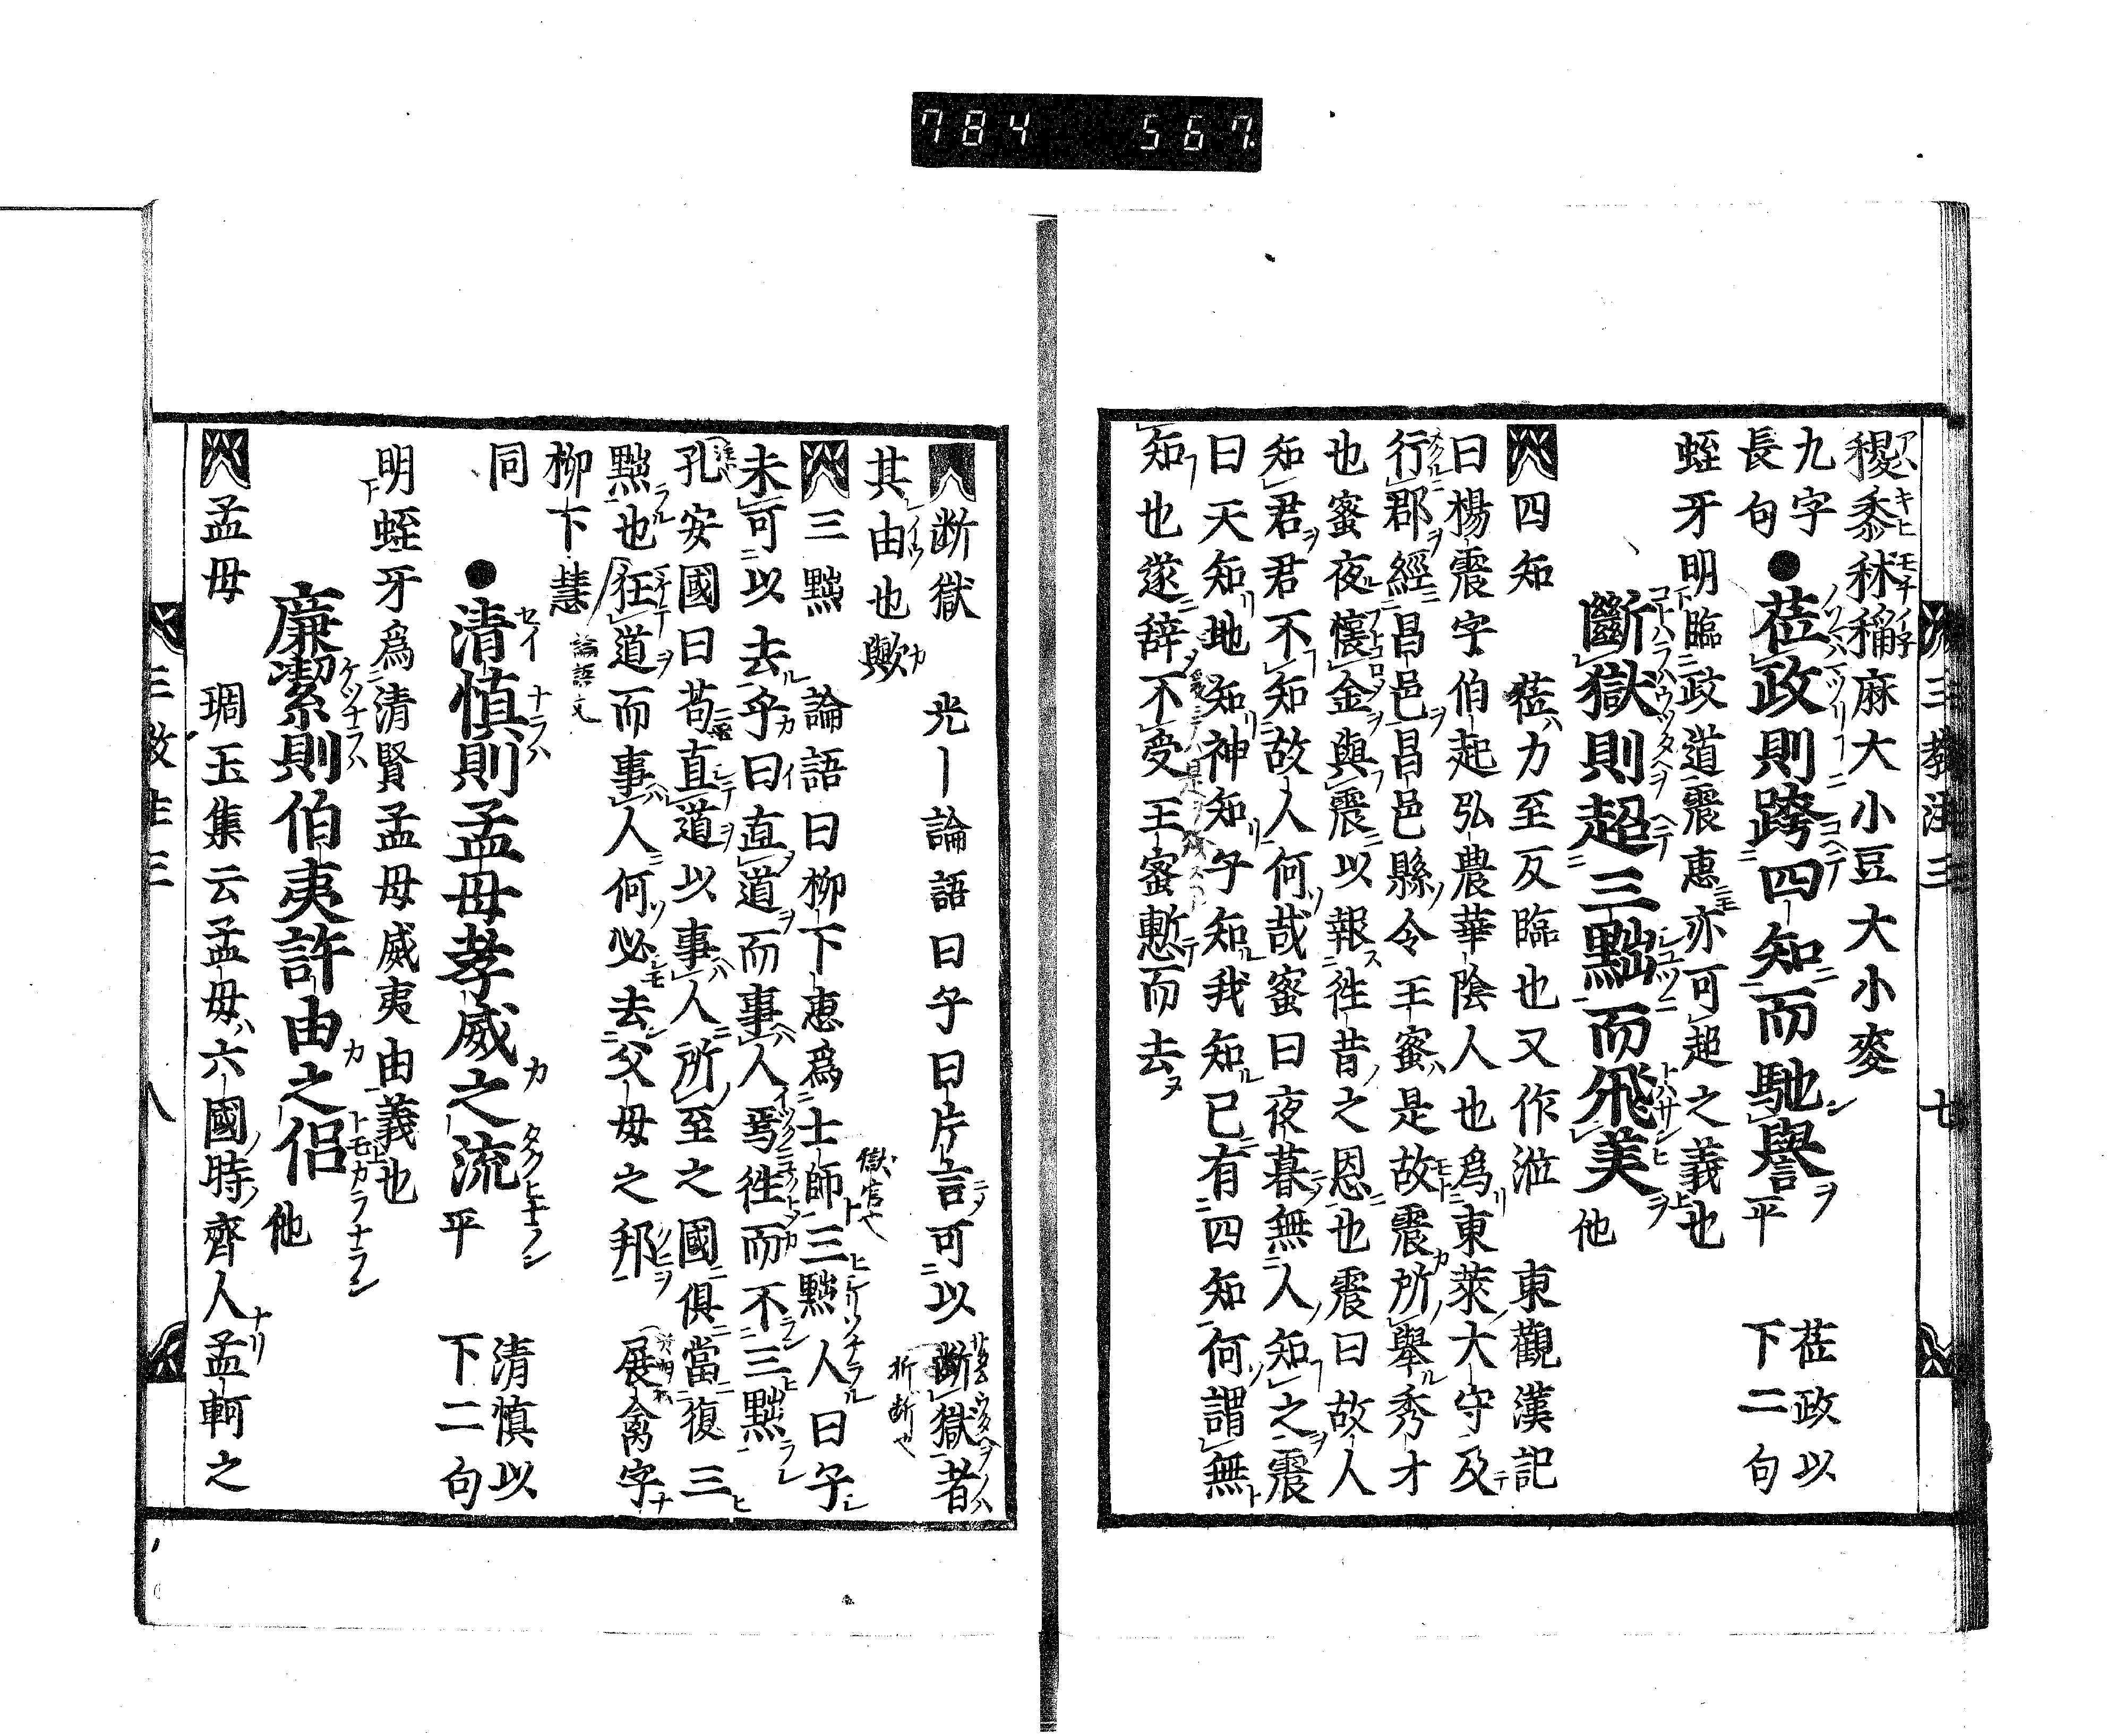 784 567
三教注三 七
稷黍秫稲麻大小豆大小麥
九字
長句
●莅政則跨四知而馳譽平
莅政以
下二句
蛭牙明臨政道震惠亦可超之義也
斷獄則超三黜而飛美他
四知 莅力至反臨也又作涖 東觀漢記
曰楊震字伯起弘農華陰人也爲東萊大守及
行郡經昌邑昌邑縣令王蜜是故震所擧秀才
也蜜夜懷金與震以報徃昔之恩也震曰故人
知君君不知故人何哉蜜曰夜暮無人知之震
曰天知地知神知子知我知已有四知何謂無
知也遂辞不受王蜜慙而去
断獄 光ー論語曰子曰片言可以断獄者
折断也
其由也歟
三黜 論語曰柳下惠爲士師三黜人曰子
獄官也
未可以去乎曰直道而事人焉徃而不三黜
孔安國曰苟直道以事人所至之國俱當復三
黜也狂道而事人何必去父母之邦 展禽字
柳下慧
論語文
同
●清慎則孟母孝威之流平
清慎以
下二句
明蛭牙爲清賢孟母威夷由義也
廉潔則伯夷許由之侶他
孟母 琱玉集云孟母六國時齊人孟軻之
三教注三 八